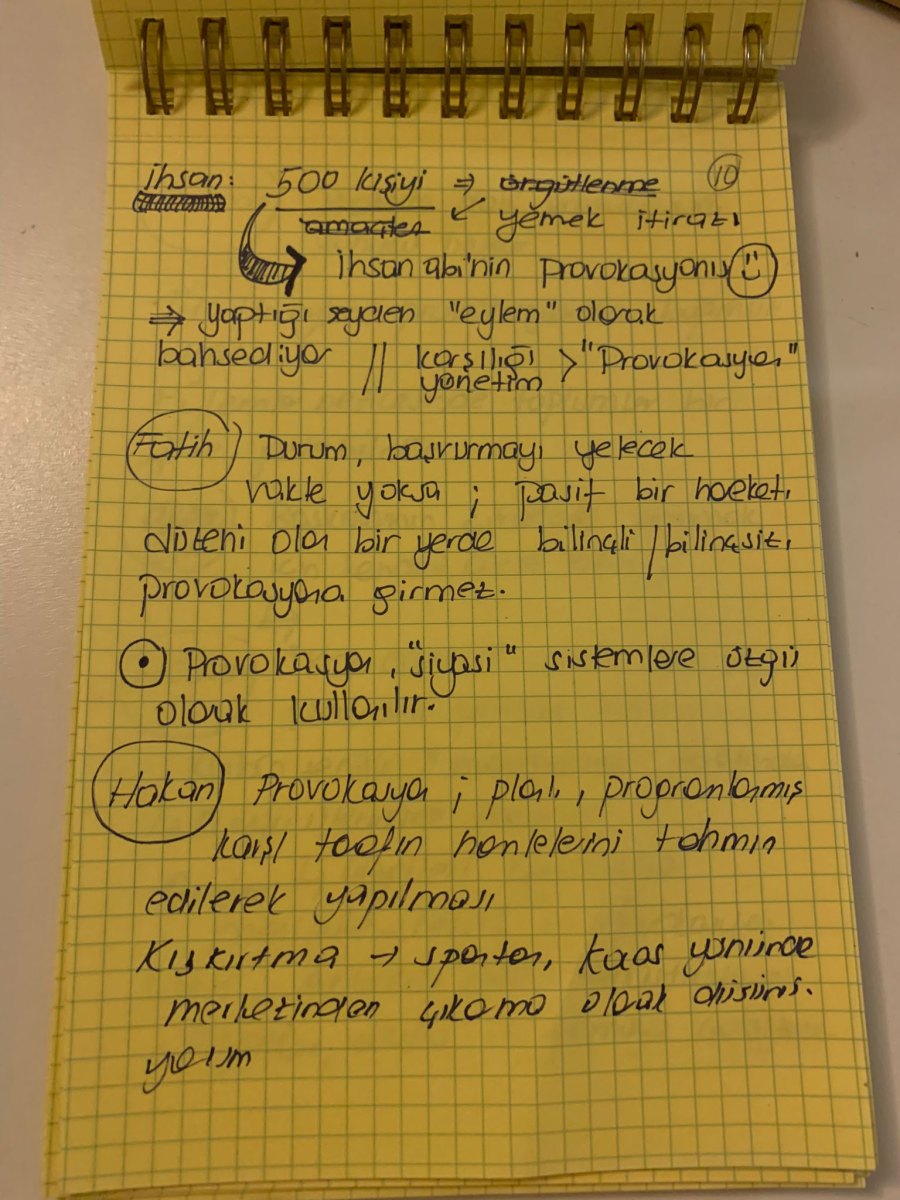 ihsan: 500 kişiyi ⇒ örgütlenme ⑩
amaçlar ↙ yemek itirazı
ihsan abi'nin provokasyonu
⇒ yaptığı şeyden "eylem" olarak
bahsediyor // karşılığı > "Provokasyon"
yönetim
Fatih Durum, başvurmayı
yoksa ; pasif bir
olan bir yerde bilinçli / bilinçsiz,
provokasyona girmez.
Provokasyon, "siyasi" sistemlere özgü
olarak kullanılır.
Hakan Provokasyon ; planlı, programlanmış
karşı tarafın hamlelerini tahmin
edilerek yapılması
Kışkırtma → spontan, kaos yönünde
merkezinden çıkama olarak düşünü.
yorum